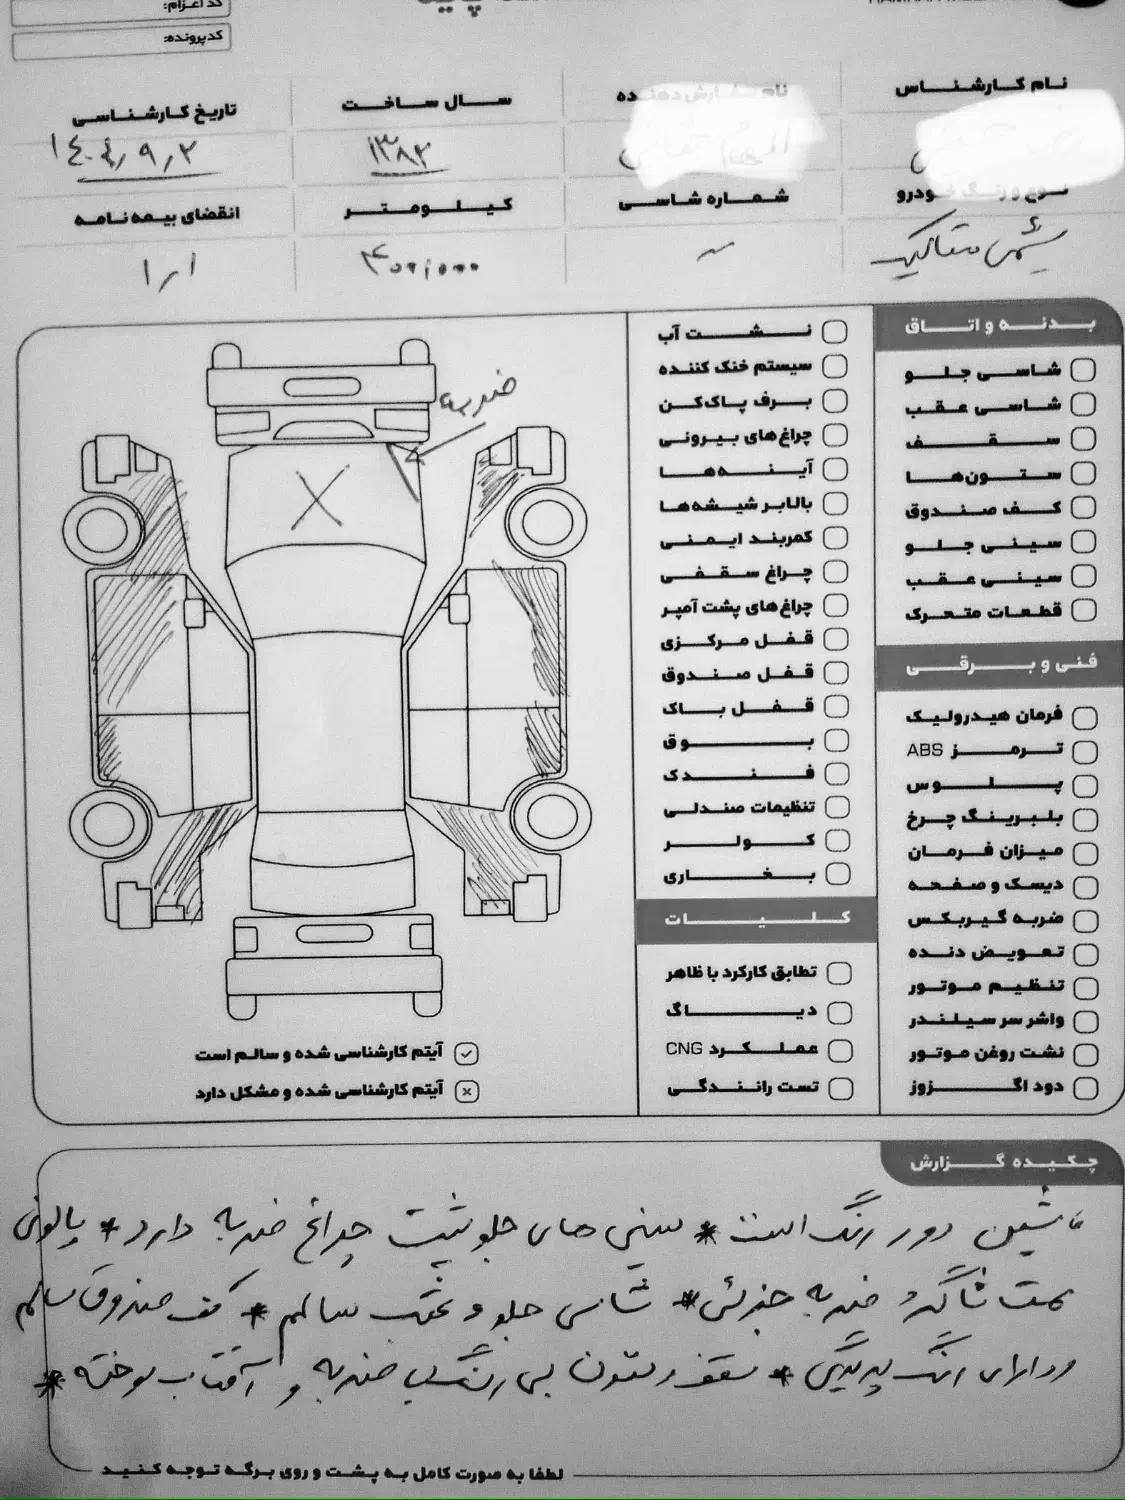 کد اعزام:
کد پرونده:
نام کارشناس
سال ساخت
تاریخ کارشناسی
۱۳۸۲
۱۴۰۴٫۹٫۲
نوع و رنگ خودرو
شماره شاسی
کیلومتر
انقضای بیمه نامه
یشمی متالیک
۴۰۰٫۰۰۰
۱٫۱
بدنه و اتاق
شاسی جلو
شاسی عقب
سقف
ستون‌ها
کف صندوق
سینی جلو
سینی عقب
قطعات متحرک
فنی و برقی
فرمان هیدرولیک
ترمز ABS
پلوس
بلبرینگ چرخ
میزان فرمان
دیسک و صفحه
ضربه گیربکس
تعویض دنده
تنظیم موتور
واشر سر سیلندر
نشت روغن موتور
دود اگزوز
نشت آب
سیستم خنک کننده
برف پاک‌کن
چراغ‌های بیرونی
آینه‌ها
بالابر شیشه‌ها
کمربند ایمنی
چراغ سقفی
چراغ‌های پشت آمپر
قفل مرکزی
قفل صندوق
قفل باک
بوق
فندک
تنظیمات صندلی
کولر
بخاری
کلیات
تطابق کارکرد با ظاهر
دیاگ
عملکرد CNG
تست رانندگی
ضربه
آیتم کارشناسی شده و سالم است
آیتم کارشناسی شده و مشکل دارد
چکیده گزارش
ماشین دور رنگ است * سینی های جلو پشت چراغ ضربه دارد * پالونی
سمت شاگرد ضربه جزئی * شاسی جلو و عقب سالم * کف صندوق سالم
و دارای رنگ پریدگی * سقف و ستون بی رنگ بی ضربه و آفتاب سوخته *
لطفا به صورت کامل به پشت و روی برگه توجه کنید